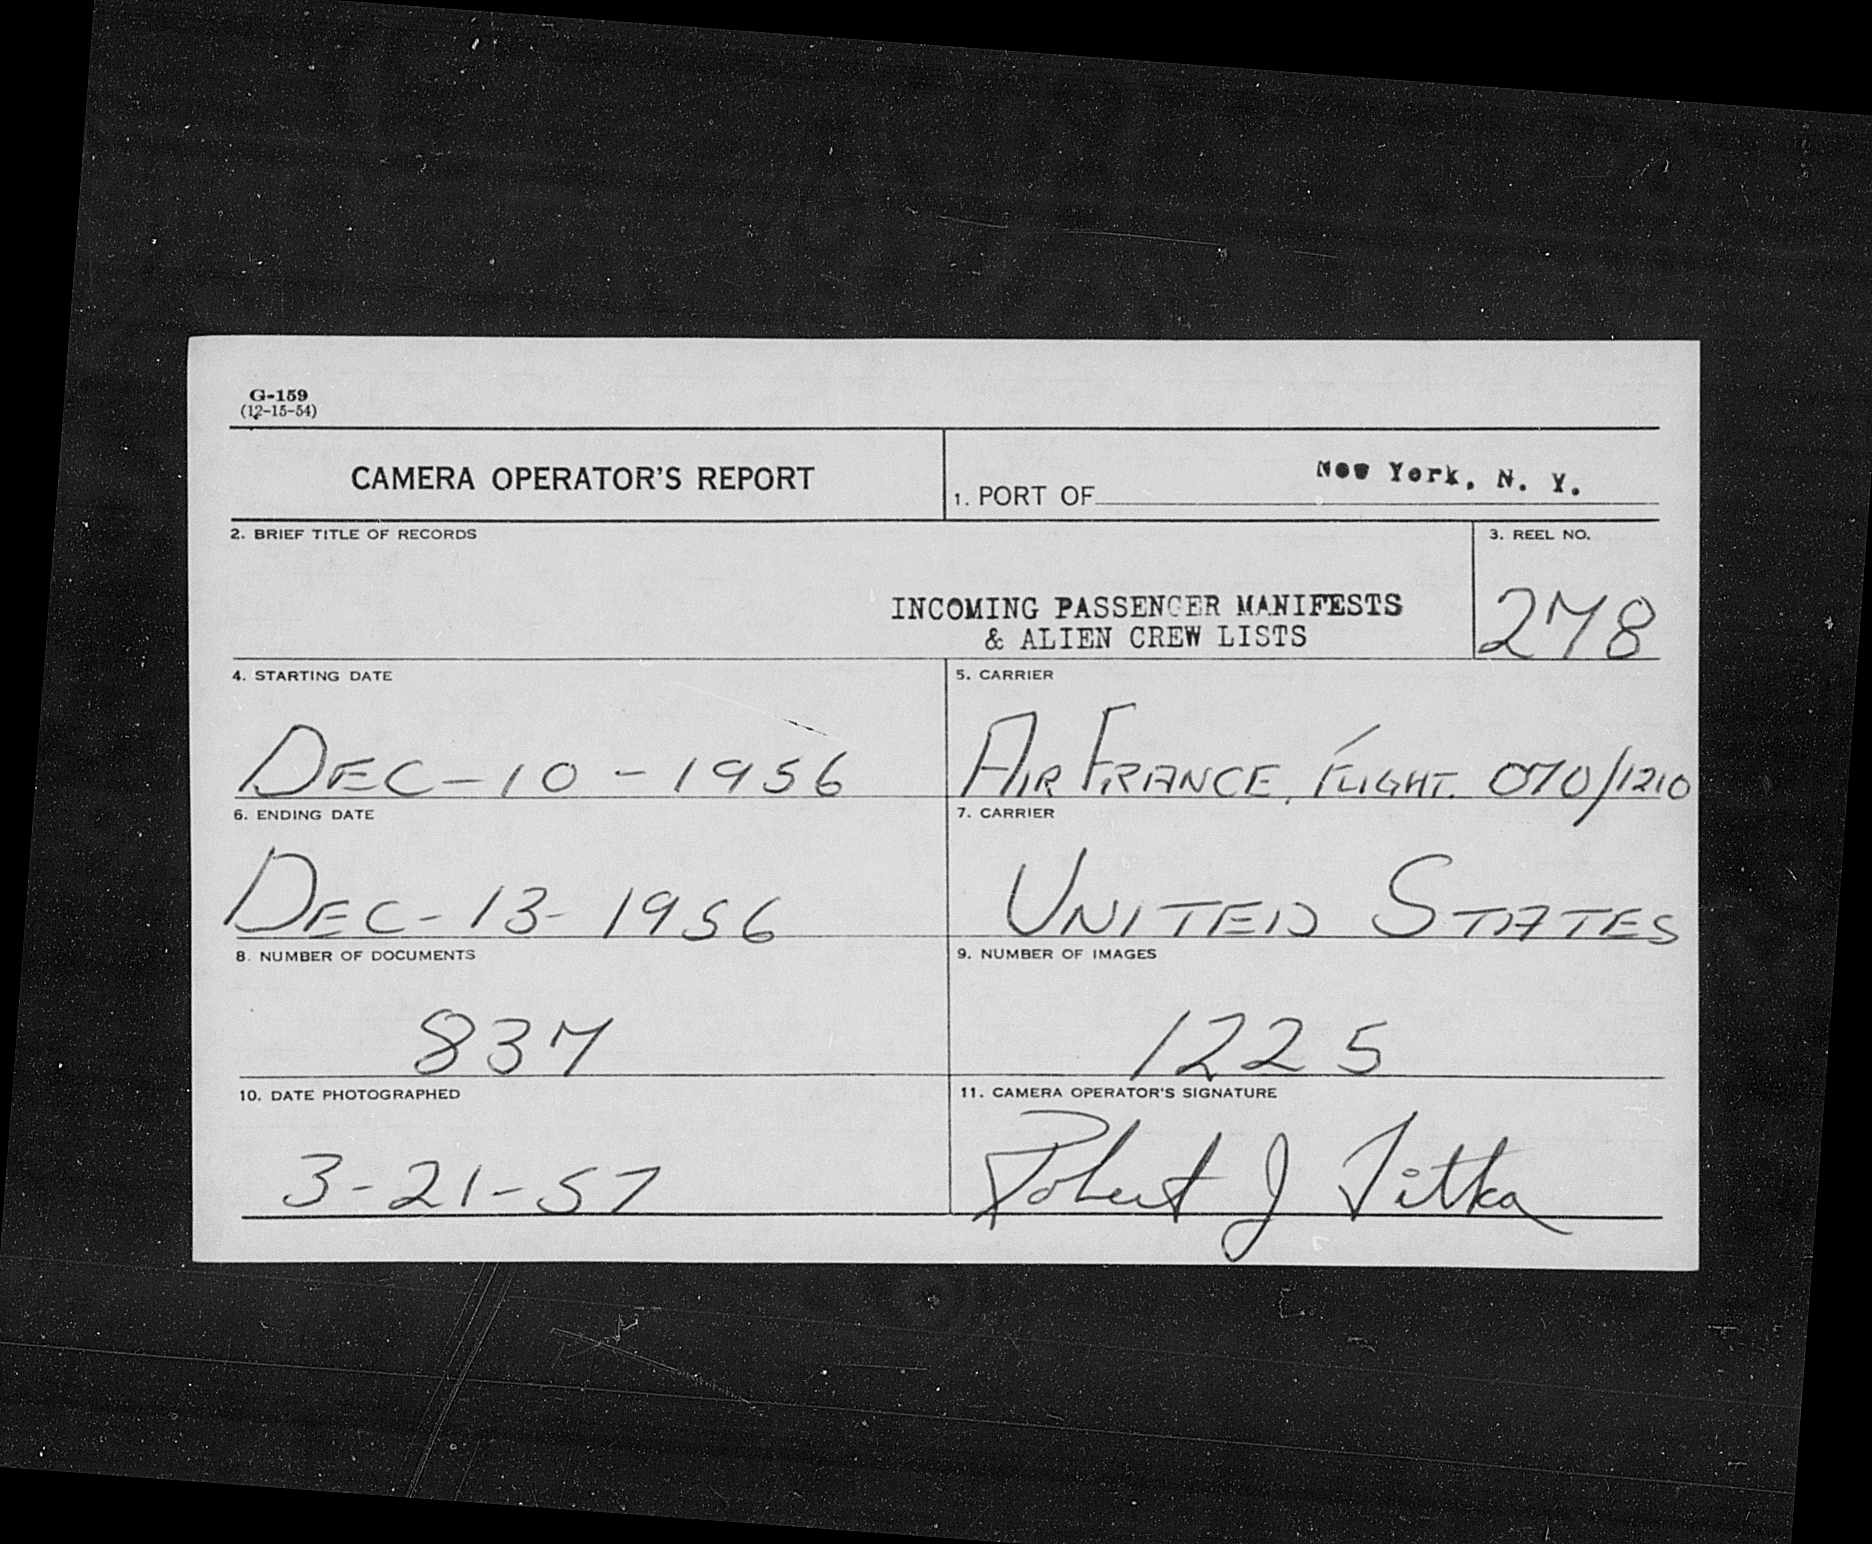 G-159
(12-15-54)
CAMERA OPERATOR'S REPORT
1. PORT OF New York, N. Y.
2. BRIEF TITLE OF RECORDS
INCOMING PASSENGER MANIFESTS
& ALIEN CREW LISTS
3. REEL NO.
278
4. STARTING DATE
DEC-10-1956
5. CARRIER
AIR FRANCE. FLIGHT. 070/1210
6. ENDING DATE
DEC-13-1956
7. CARRIER
UNITED STATES
8. NUMBER OF DOCUMENTS
837
9. NUMBER OF IMAGES
1225
10. DATE PHOTOGRAPHED
3-21-57
11. CAMERA OPERATOR'S SIGNATURE
Robert J